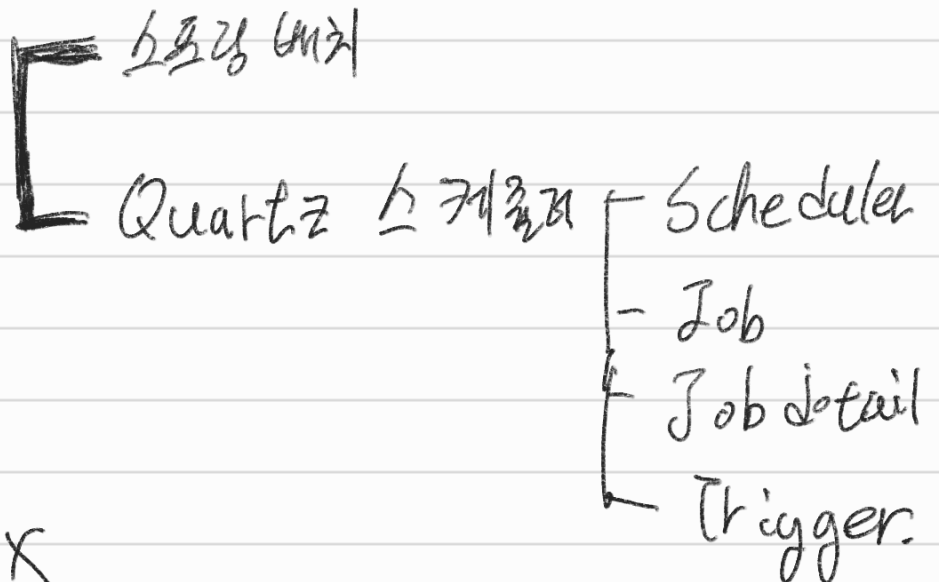 스프링 배치
Quartz 스케줄러 Scheduler
Job
Job detail
Trigger.
X